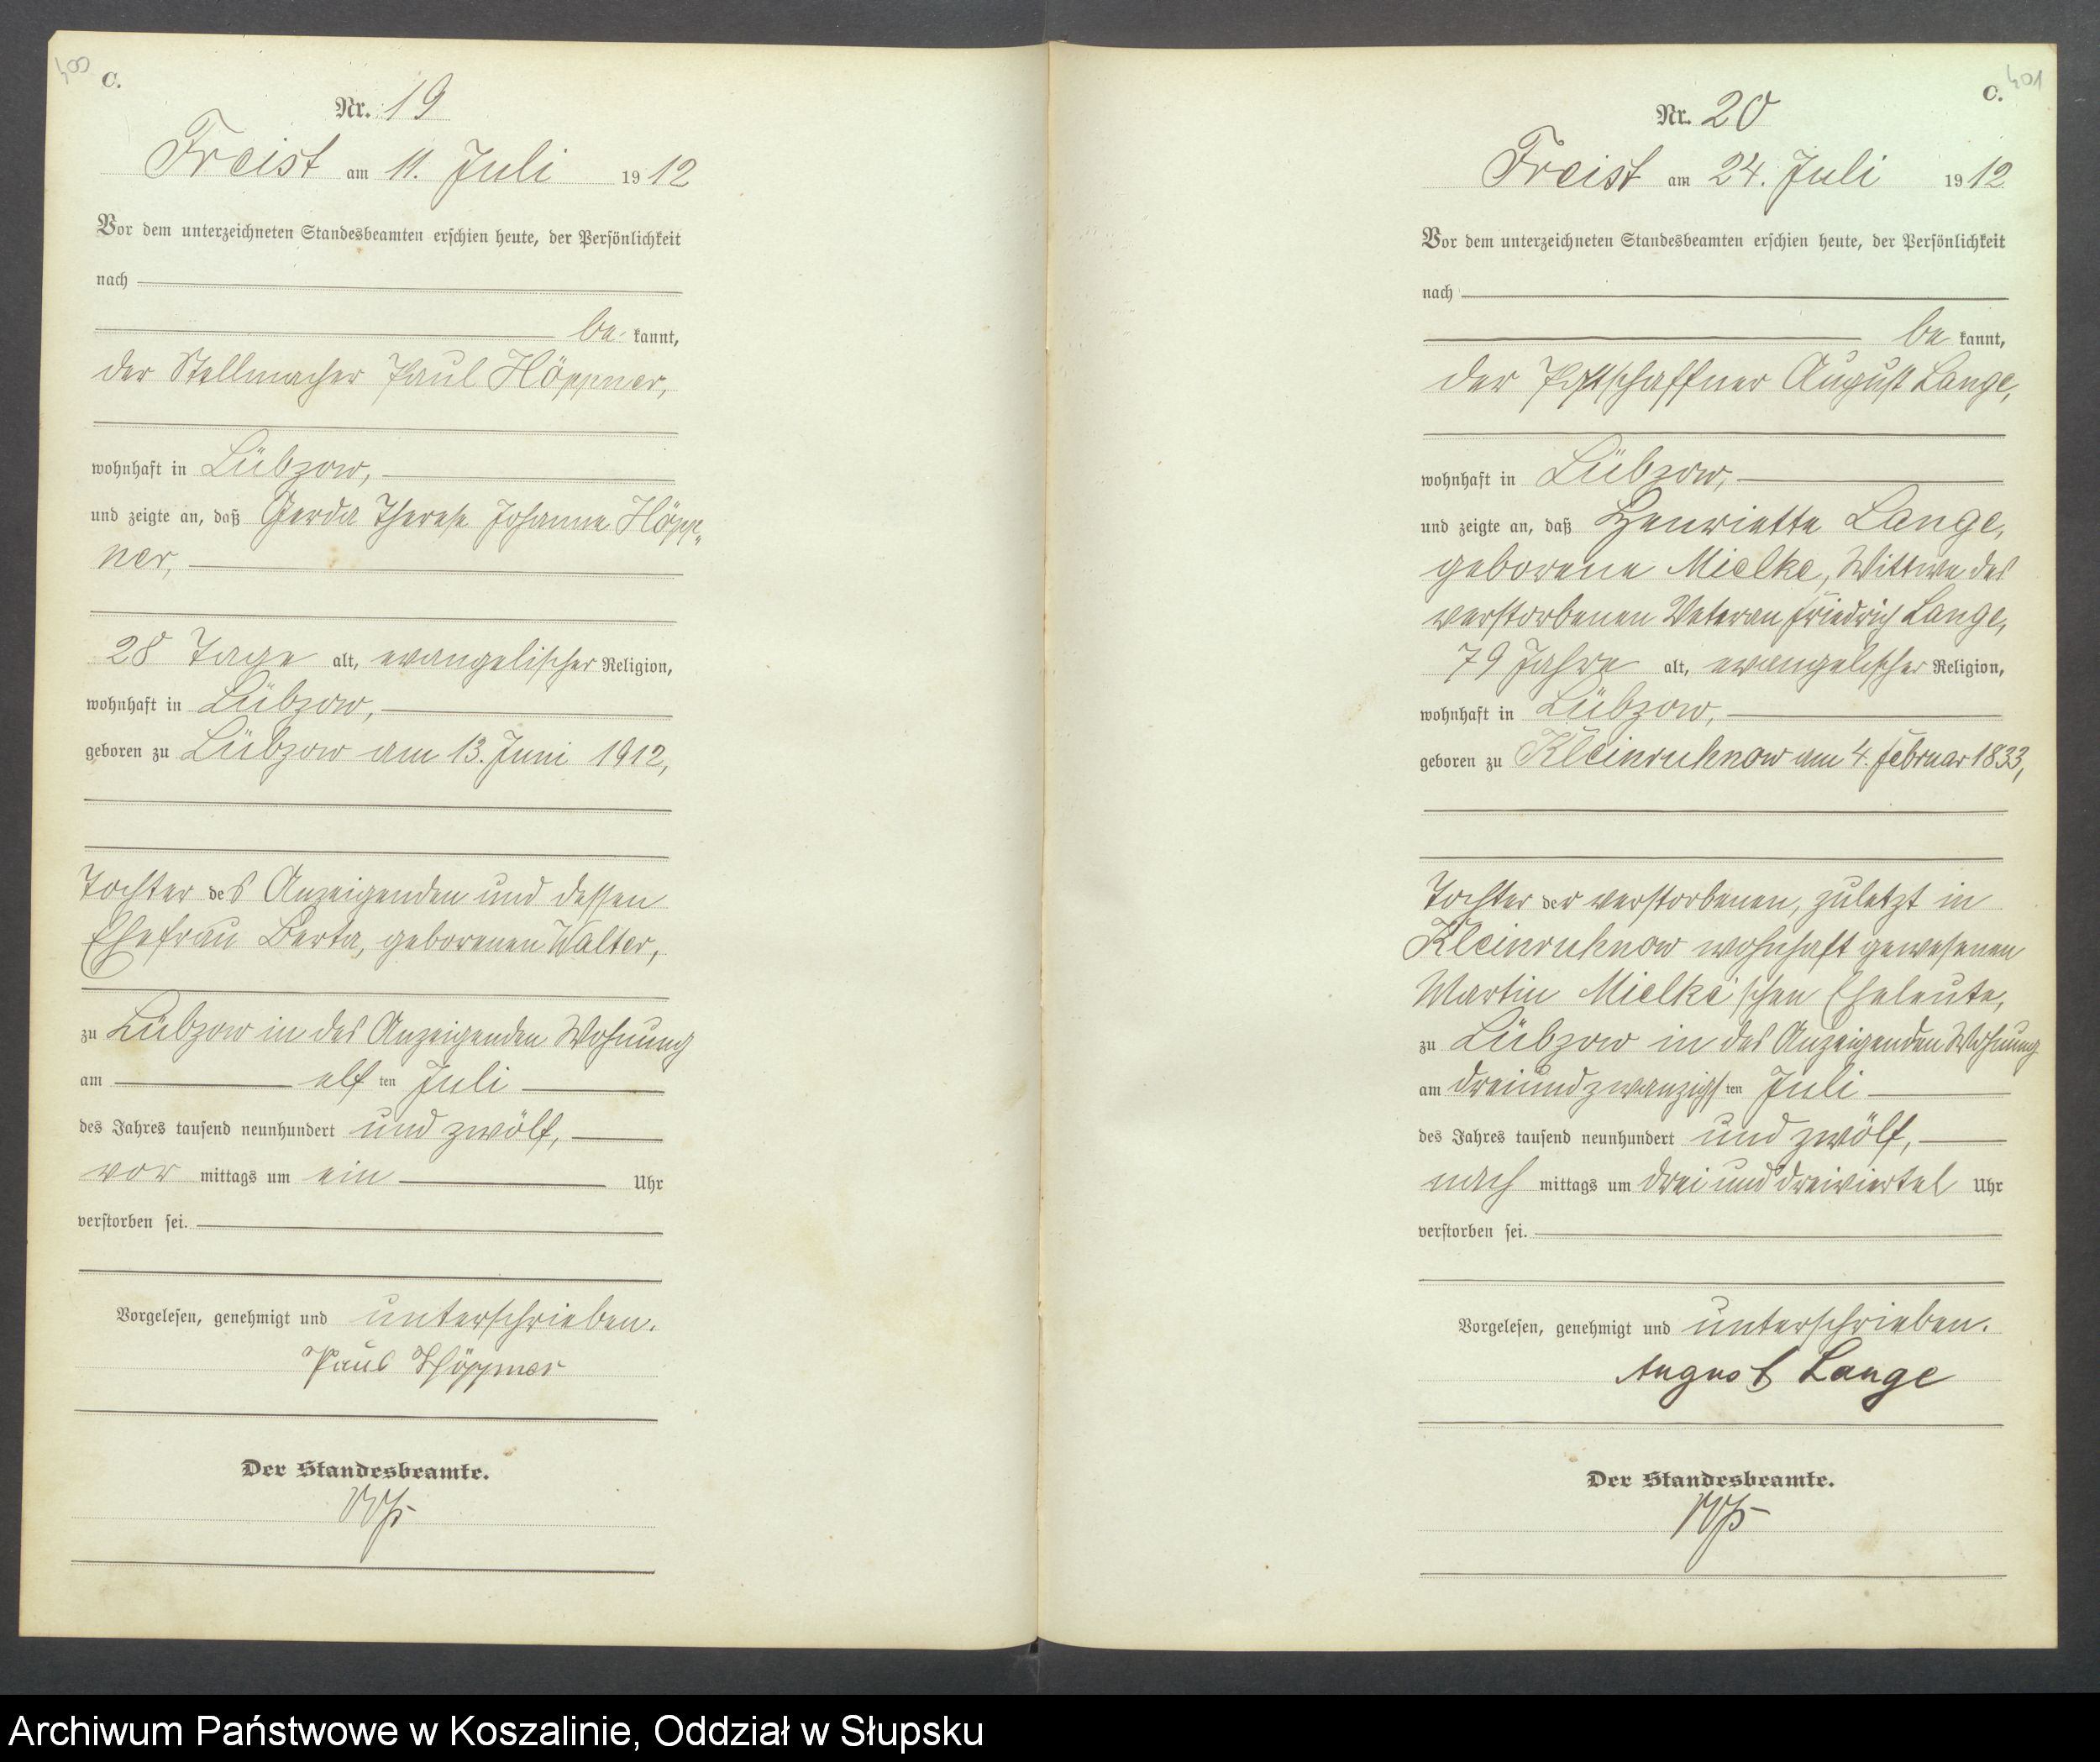 400
C.
Nr. 19
Freist am 11. Juli 1912
Vor dem unterzeichneten Standesbeamten erschien heute, der Persönlichkeit
nach
be kannt,
der Stellmacher Paul Höppner,
wohnhaft in Lübzow,
und zeigte an, daß Gerda Therese Johanna Höpp„
ner,
28 Tage alt, evangelischer Religion,
wohnhaft in Lübzow,
geboren zu Lübzow am 13. Juni 1912,
Tochter des Anzeigenden und dessen
Ehefrau Berta, geborenen Walter,
zu Lübzow in des Anzeigenden Wohnung
am elf ten Juli
des Jahres tausend neunhundert und zwölf,
vor mittags um ein Uhr
verstorben sei.
Vorgelesen, genehmigt und unterschrieben.
Paul Höppner
Der Standesbeamte.
401
C.
Nr. 20
Freist am 24. Juli 1912
Vor dem unterzeichneten Standesbeamten erschien heute, der Persönlichkeit
nach
be kannt,
der Postschaffner August Lange,
wohnhaft in Lübzow,
und zeigte an, daß Henriette Lange,
geborene Mielke, Wittwe des
verstorbenen Veteran Friedrich Lange,
79 Jahre alt, evangelischer Religion,
wohnhaft in Lübzow,
geboren zu Kleinruhnow am 4. Februar 1833,
Tochter der verstorbenen, zuletzt in
Kleinruhnow wohnhaft gewesenen
Martin Mielke'schen Eheleute,
zu Lübzow in des Anzeigenden Wohnung
am dreiundzwanzigsten Juli
des Jahres tausend neunhundert und zwölf,
nach mittags um drei und dreiviertel Uhr
verstorben sei.
Vorgelesen, genehmigt und unterschrieben.
August Lange
Der Standesbeamte.
Archiwum Państwowe w Koszalinie, Oddział w Słupsku